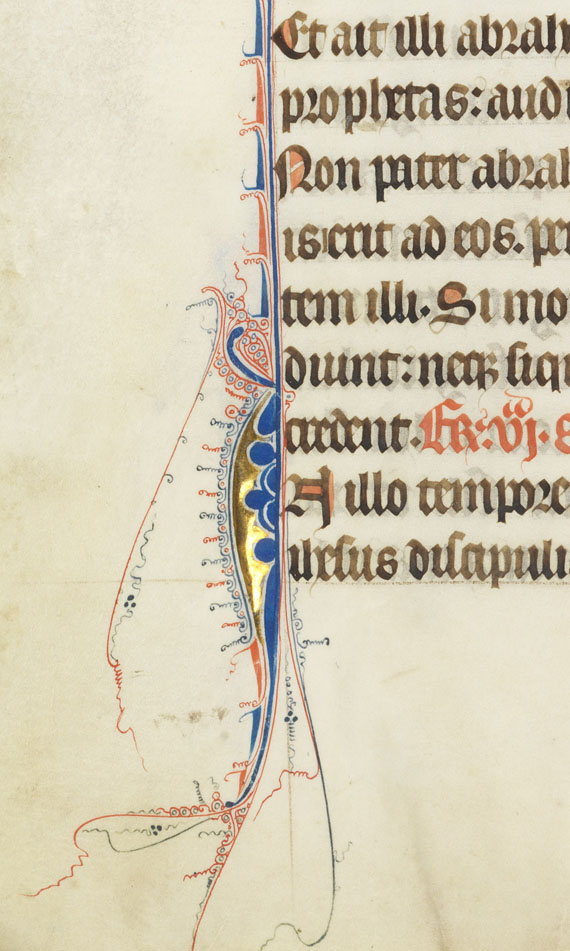 Et ait illi abrah
prophetas: audi
Non pater abrah
ierit ad eos. pe
tem illi. Si mo
diunt: neqꝫ siqu
credent. Fr. vj. 
In illo tempore
ihesus discipuli